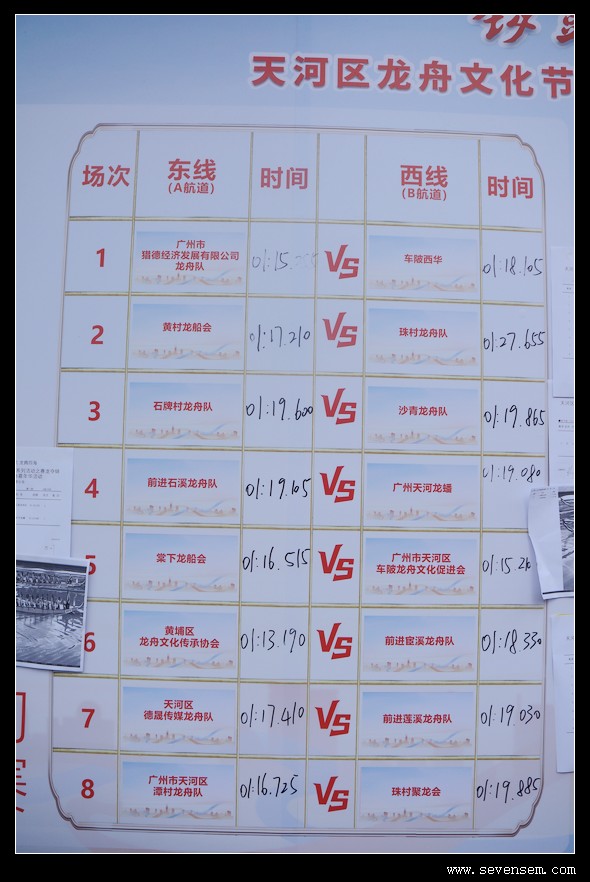 天河区龙舟文化节
场次 东线 (A航道) 时间 西线 (B航道) 时间
1 广州市 猎德经济发展有限公司 龙舟队 VS 车陂西华 01:18.105
2 黄村龙船会 01:17.210 VS 珠村龙舟队 01:27.655
3 石牌村龙舟队 01:19.600 VS 沙青龙舟队 01:19.865
4 前进石溪龙舟队 01:19.105 VS 广州天河龙蟠 01:19.080
5 棠下龙船会 01:16.515 VS 广州市天河区 车陂龙舟文化促进会
6 黄埔区 龙舟文化传承协会 01:13.190 VS 前进宦溪龙舟队 01:18.330
7 天河区 德晟传媒龙舟队 01:17.410 VS 前进莲溪龙舟队 01:19.030
8 广州市天河区 潭村龙舟队 01:16.725 VS 珠村聚龙会 01:19.885
www.sevensem.com